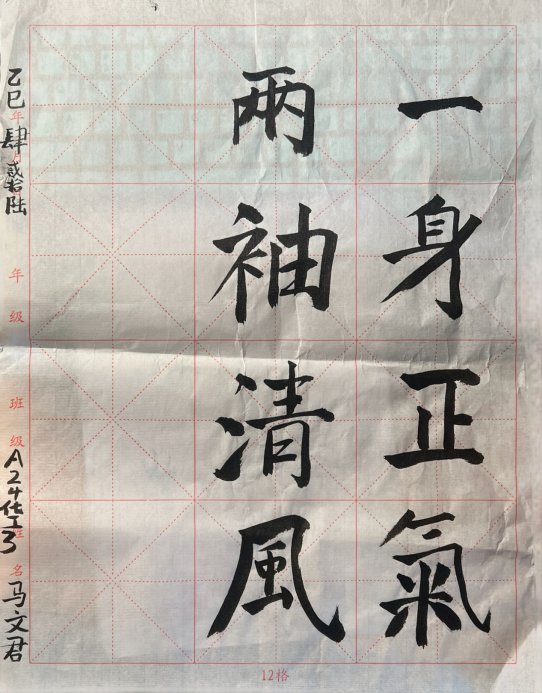 一身正氣
兩袖清風
乙巳年肆月貳拾陆
年級
班級 A24化工3
姓名 马文君
12格